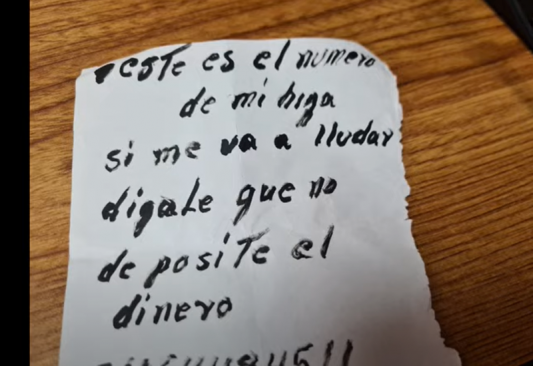 este es el numero
de mi higa
si me va a lludar
digale que no
de posite el
dinero